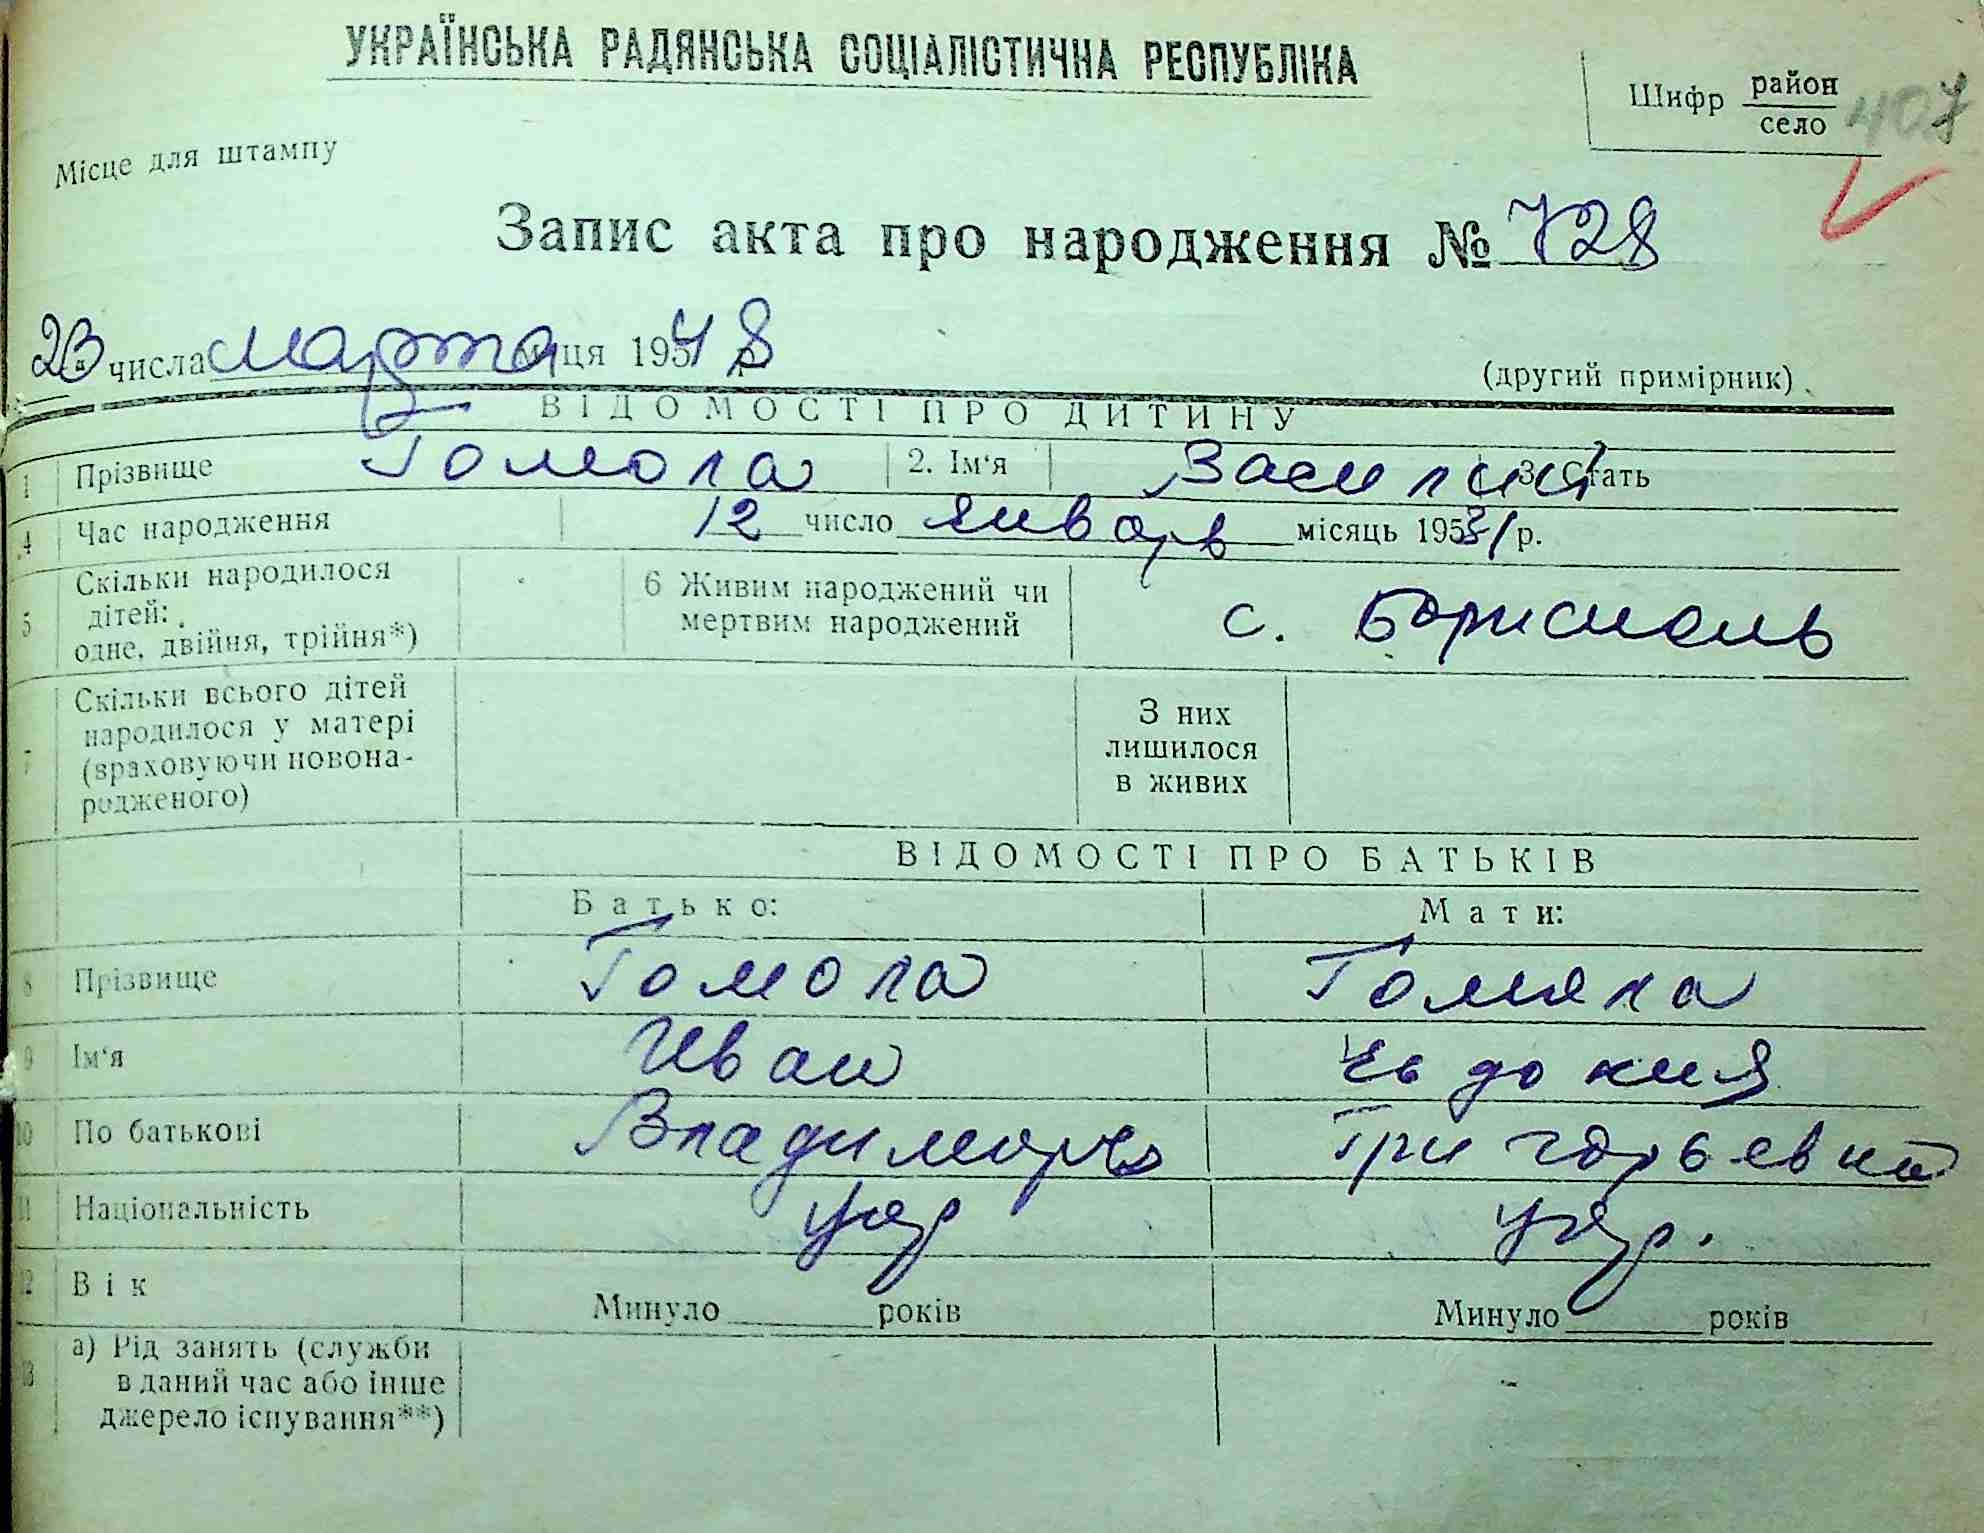 УКРАЇНСЬКА РАДЯНСЬКА СОЦІАЛІСТИЧНА РЕСПУБЛІКА
Шифр район
село
407
Місце для штампу
Запис акта про народження № 728
23 числа марта місяця 1948
(другий примірник)
ВІДОМОСТІ ПРО ДИТИНУ
1 Прізвище Гомола 2. Ім'я Василий 3. Стать
4 Час народження 12 число январь місяць 1931 р.
5 Скільки народилося дітей: одне, двійня, трійня*) 6 Живим народжений чи мертвим народжений с. Бориспель
7 Скільки всього дітей народилося у матері (враховуючи новонародженого) З них лишилося в живих
ВІДОМОСТІ ПРО БАТЬКІВ
Батько: Мати:
8 Прізвище Гомола Гомяла
9 Ім'я Иван Евдокия
10 По батькові Владимирів Григорьевна
11 Національність укр укр.
12 Вік Минуло років Минуло років
13 а) Рід занять (служби
в даний час або інше
джерело існування**)